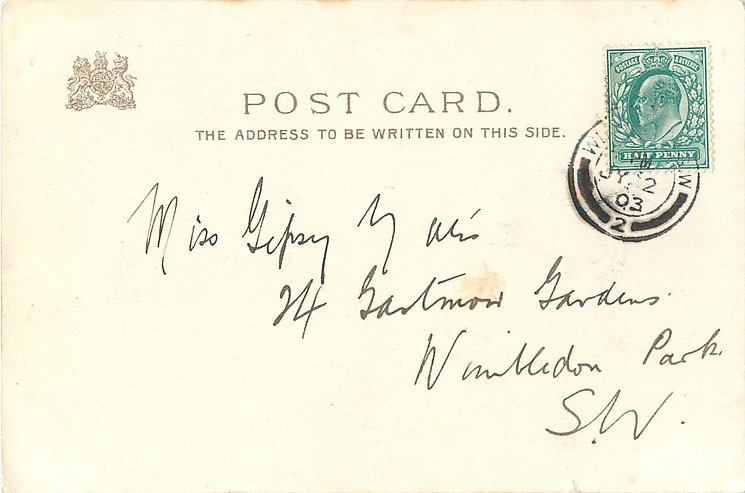 POST CARD.
THE ADDRESS TO BE WRITTEN ON THIS SIDE.
POSTAGE & REVENUE
HALF PENNY
JY 2
03
2
Miss Gipsy
24 Gardens
Wimbledon Park
S.W.